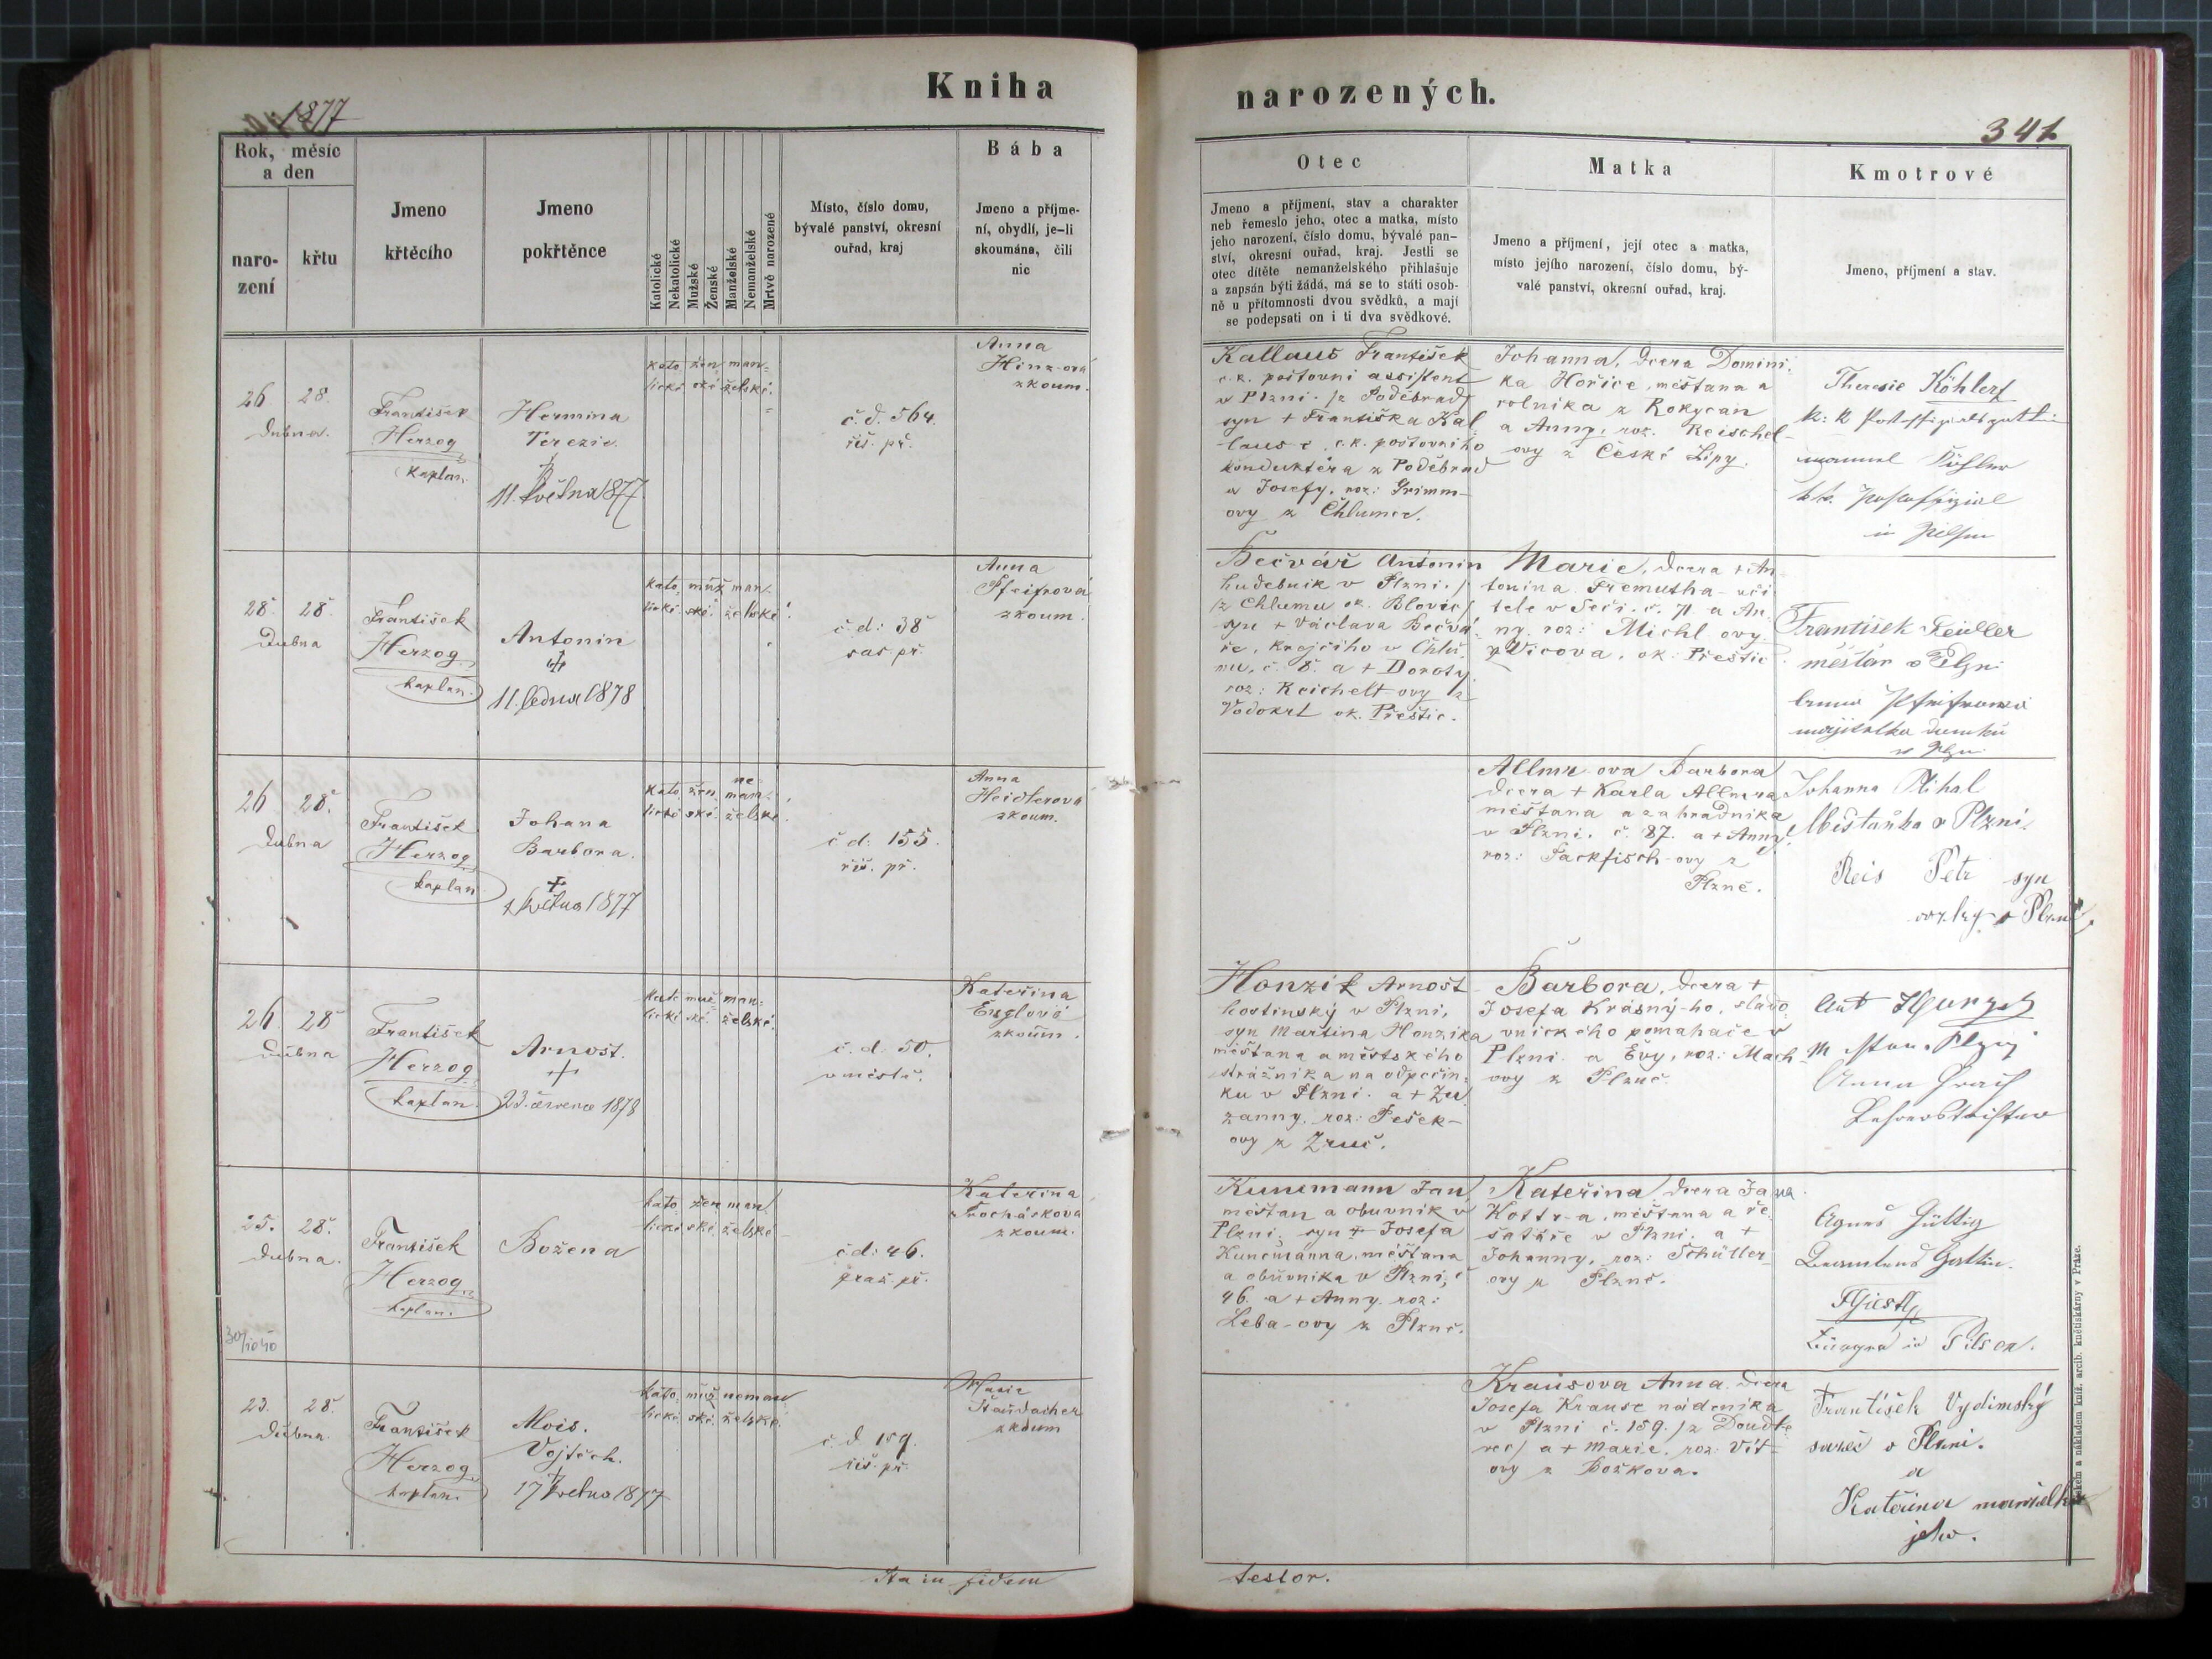 Kniha
narozených.
1877
341.
Rok, měsíc
a den
naro-
zení
křtu
Jmeno
křtěcího
Jmeno
pokřtěnce
Katolické
Nekatolické
Mužské
Ženské
Manželské
Nemanželské
Mrtvě narozené
Místo, číslo domu,
bývalé panství, okresní
ouřad, kraj
Bába
Jmeno a příjme-
ní, obydlí, je-li
skoumána, čili
nic
Otec
Jmeno a příjmení, stav a charakter
neb řemeslo jeho, otec a matka, místo
jeho narození, číslo domu, bývalé pan-
ství, okresní ouřad, kraj. Jestli se
otec dítěte nemanželského přihlašuje
a zapsán býti žádá, má se to státi osob-
ně u přítomnosti dvou svědků, a mají
se podepsati on i ti dva svědkové.
Matka
Jmeno a příjmení, její otec a matka,
místo jejího narození, číslo domu, bý-
valé panství, okresní ouřad, kraj.
Kmotrové
Jmeno, příjmení a stav.
26. 28.
Dubna.
František
Herzog
kaplan.
Hermina
Terezie
11. května 1877
kato žen man-
lické ské želské.
č. d. 564.
řiš. př.
Anna
Hinz-ová
zkoum.
Kallaus František
c. k. poštovní assistent
v Plzni. /z Poděbrad/
syn + Františka Kal-
laus-e, c. k. poštovního
konduktéra z Poděbrad
a Josefy, roz: Grimm-
ovy z Chlumce.
Johanna, dcera Domini-
ka Hořice, měšťana a
rolníka z Rokycan
a Anny, roz. Reischel-
ovy z České Lípy.
Theresie Köhler
k. k. Postoffizialsgattin
k. k. Postoffizial
in Pilsen
28. 28.
Dubna
František
Herzog
kaplan.
Antonin
11. ledna 1878
kato muž man-
lické ské. želské.
č. d: 38
sas. př.
Anna
Pfeifrová
zkoum.
Bečvář Antonin
hudebník v Plzni.
/z Chlumu ok. Blovic/
syn + Václava Bečvá-
ře, krejčího v Chlu-
mu, č. 8. a + Doroty
roz: Reichelt-ovy z
Vodokrt ok. Přeštic.
Marie, dcera + An-
tonína Fremutha uči-
tele v Seči. č. 71. a An-
ny roz: Michl-ovy
z Vícova, ok. Přeštic.
František Feidler
měšťan v Plzni
Anna Pfeifrová
majitelka domku
v Plzni
26 28.
Dubna
František
Herzog
kaplan
Johana
Barbora.
+
května 1877
kato žen ne-
man-
lické ské. želské.
č. d: 155.
řiš. př.
Anna
Heidlerova
zkoum.
Allmr-ova Barbora
dcera + Karla Allmra
měšťana a zahradníka
v Plzni. č. 87. a + Anny
roz: Sackfisch-ovy z
Plzně.
Johanna Mihal
Měšťanka v Plzni.
Reis Petr syn
v Plzni
26. 28
Dubna
František
Herzog
kaplan.
Arnošt.
+
23. července 1878
kato muž man-
lické ské. želské.
č. d. 50.
v městě.
Kateřina
Englová
zkoum.
Honzik Arnošt
hostinský v Plzni,
syn Martina Honzika
měšťana a městského
strážníka na odpočin-
ku v Plzni. a + Zu-
zanny, roz: Pešek-
ovy z Zruč.
Barbora, dcera +
Josefa Krásný-ho, slado-
vnického pomahače v
Plzni. a Evy, roz: Mach-
ovy z Plzně.
Anna
25. 28.
Dubna.
František
Herzog
kaplan.
Božena
kato žen man-
lické ské. želské
č. d: 46.
praž. př.
Kateřina
Procháskova
zkoum.
Kunemann Jan
měšťan a obuvník v
Plzni. syn + Josefa
Kunemanna, měšťana
a obuvníka v Plzni, č
46. a + Anny. roz:
Leba-ovy z Plzně.
Kateřina, dcera Jana
Kottr-a, měšťana a ře-
šatáře v Plzni. a +
Johanny, roz: Schüller-
ovy z Plzně.
Agnes Gültig
Beamtens Gattin.
in Pilsen.
23. 28.
Dubna.
František
Herzog
kaplan.
Alois.
Vojtěch.
+
17 května 1877
kato. muž neman-
lické. ské. želské.
č. d. 159.
řiš. př.
Marie
Haubacher
zkoum
Krausova Anna. dcera
Josefa Krause nádeníka
v Plzni č. 159. /z Doudle-
vec/ a + Marie. roz: Vít-
ovy z Božkova.
František Vydimský
v Plzni.
a
Kateřina manželka
jeho.
Ita in fidem
testor.